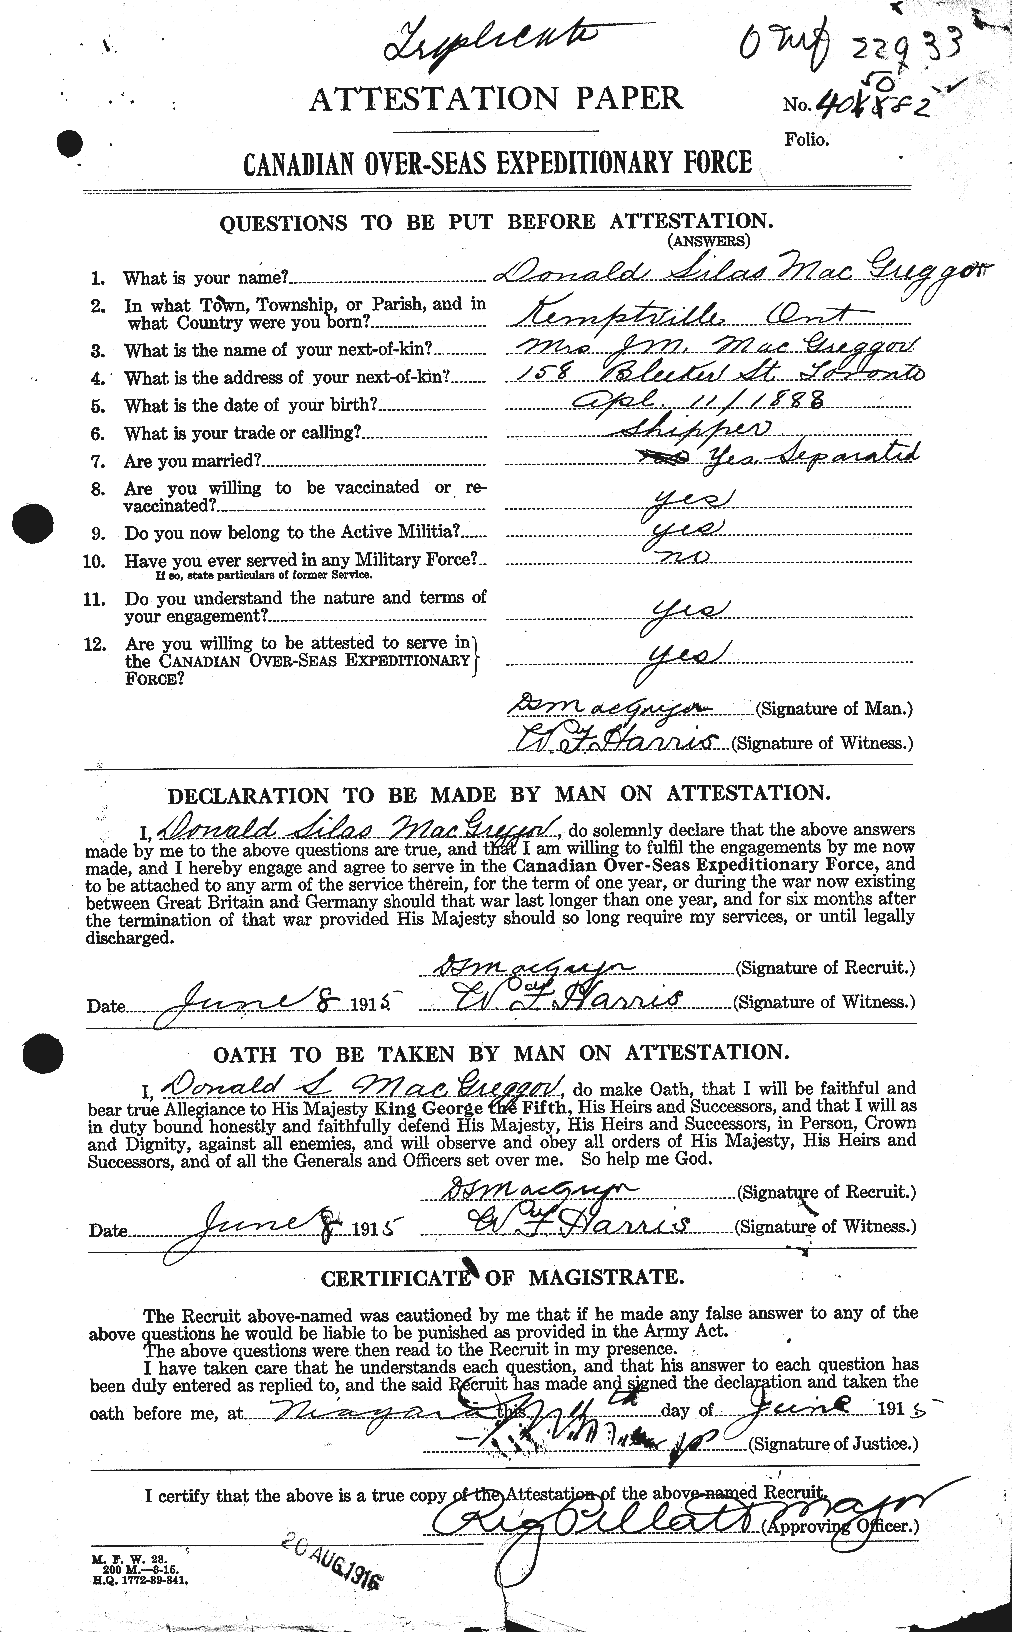 Triplicate
22933
50
ATTESTATION PAPER
No.
Folio.
CANADIAN OVER-SEAS EXPEDITIONARY FORCE
QUESTIONS TO BE PUT BEFORE ATTESTATION.
(ANSWERS)
1. What is your name? Donald Silas Mac Greggor
2. In what Town, Township, or Parish, and in
what Country were you born? Kemptville Ont
3. What is the name of your next-of-kin? Mrs J.M. Mac Greggor
4. What is the address of your next-of-kin? 158 Bleeker St. Toronto
5. What is the date of your birth? Apl. 11/1888
6. What is your trade or calling? Shipper
7. Are you married? Yes. Separated
8. Are you willing to be vaccinated or re-
vaccinated? yes
9. Do you now belong to the Active Militia? yes
10. Have you ever served in any Military Force? no
If so, state particulars of former Service.
11. Do you understand the nature and terms of
your engagement? yes
12. Are you willing to be attested to serve in
the CANADIAN OVER-SEAS EXPEDITIONARY yes
FORCE?
DSMacGregor (Signature of Man.)
W.F. Harris (Signature of Witness.)
DECLARATION TO BE MADE BY MAN ON ATTESTATION.
I, Donald Silas MacGreggor, do solemnly declare that the above answers
made by me to the above questions are true, and that I am willing to fulfil the engagements by me now
made, and I hereby engage and agree to serve in the Canadian Over-Seas Expeditionary Force, and
to be attached to any arm of the service therein, for the term of one year, or during the war now existing
between Great Britain and Germany should that war last longer than one year, and for six months after
the termination of that war provided His Majesty should so long require my services, or until legally
discharged.
DSMacGregor (Signature of Recruit.)
Date June 8 1915 W F Harris (Signature of Witness.)
OATH TO BE TAKEN BY MAN ON ATTESTATION.
I, Donald S. MacGreggor, do make Oath, that I will be faithful and
bear true Allegiance to His Majesty King George the Fifth, His Heirs and Successors, and that I will as
in duty bound honestly and faithfully defend His Majesty, His Heirs and Successors, in Person, Crown
and Dignity, against all enemies, and will observe and obey all orders of His Majesty, His Heirs and
Successors, and of all the Generals and Officers set over me. So help me God.
DSMacGregor (Signature of Recruit.)
Date June 8 1915 W F Harris (Signature of Witness.)
CERTIFICATE OF MAGISTRATE.
The Recruit above-named was cautioned by me that if he made any false answer to any of the
above questions he would be liable to be punished as provided in the Army Act.
The above questions were then read to the Recruit in my presence.
I have taken care that he understands each question, and that his answer to each question has
been duly entered as replied to, and the said Recruit has made and signed the declaration and taken the
oath before me, at Niagara this day of June 1915
(Signature of Justice.)
I certify that the above is a true copy of the Attestation of the above-named Recruit.
Reg Pellatt Major (Approving Officer.)
26 AUG. 1916
M. F. W. 23.
200 M.—3-15.
H.Q. 1772-39-841.